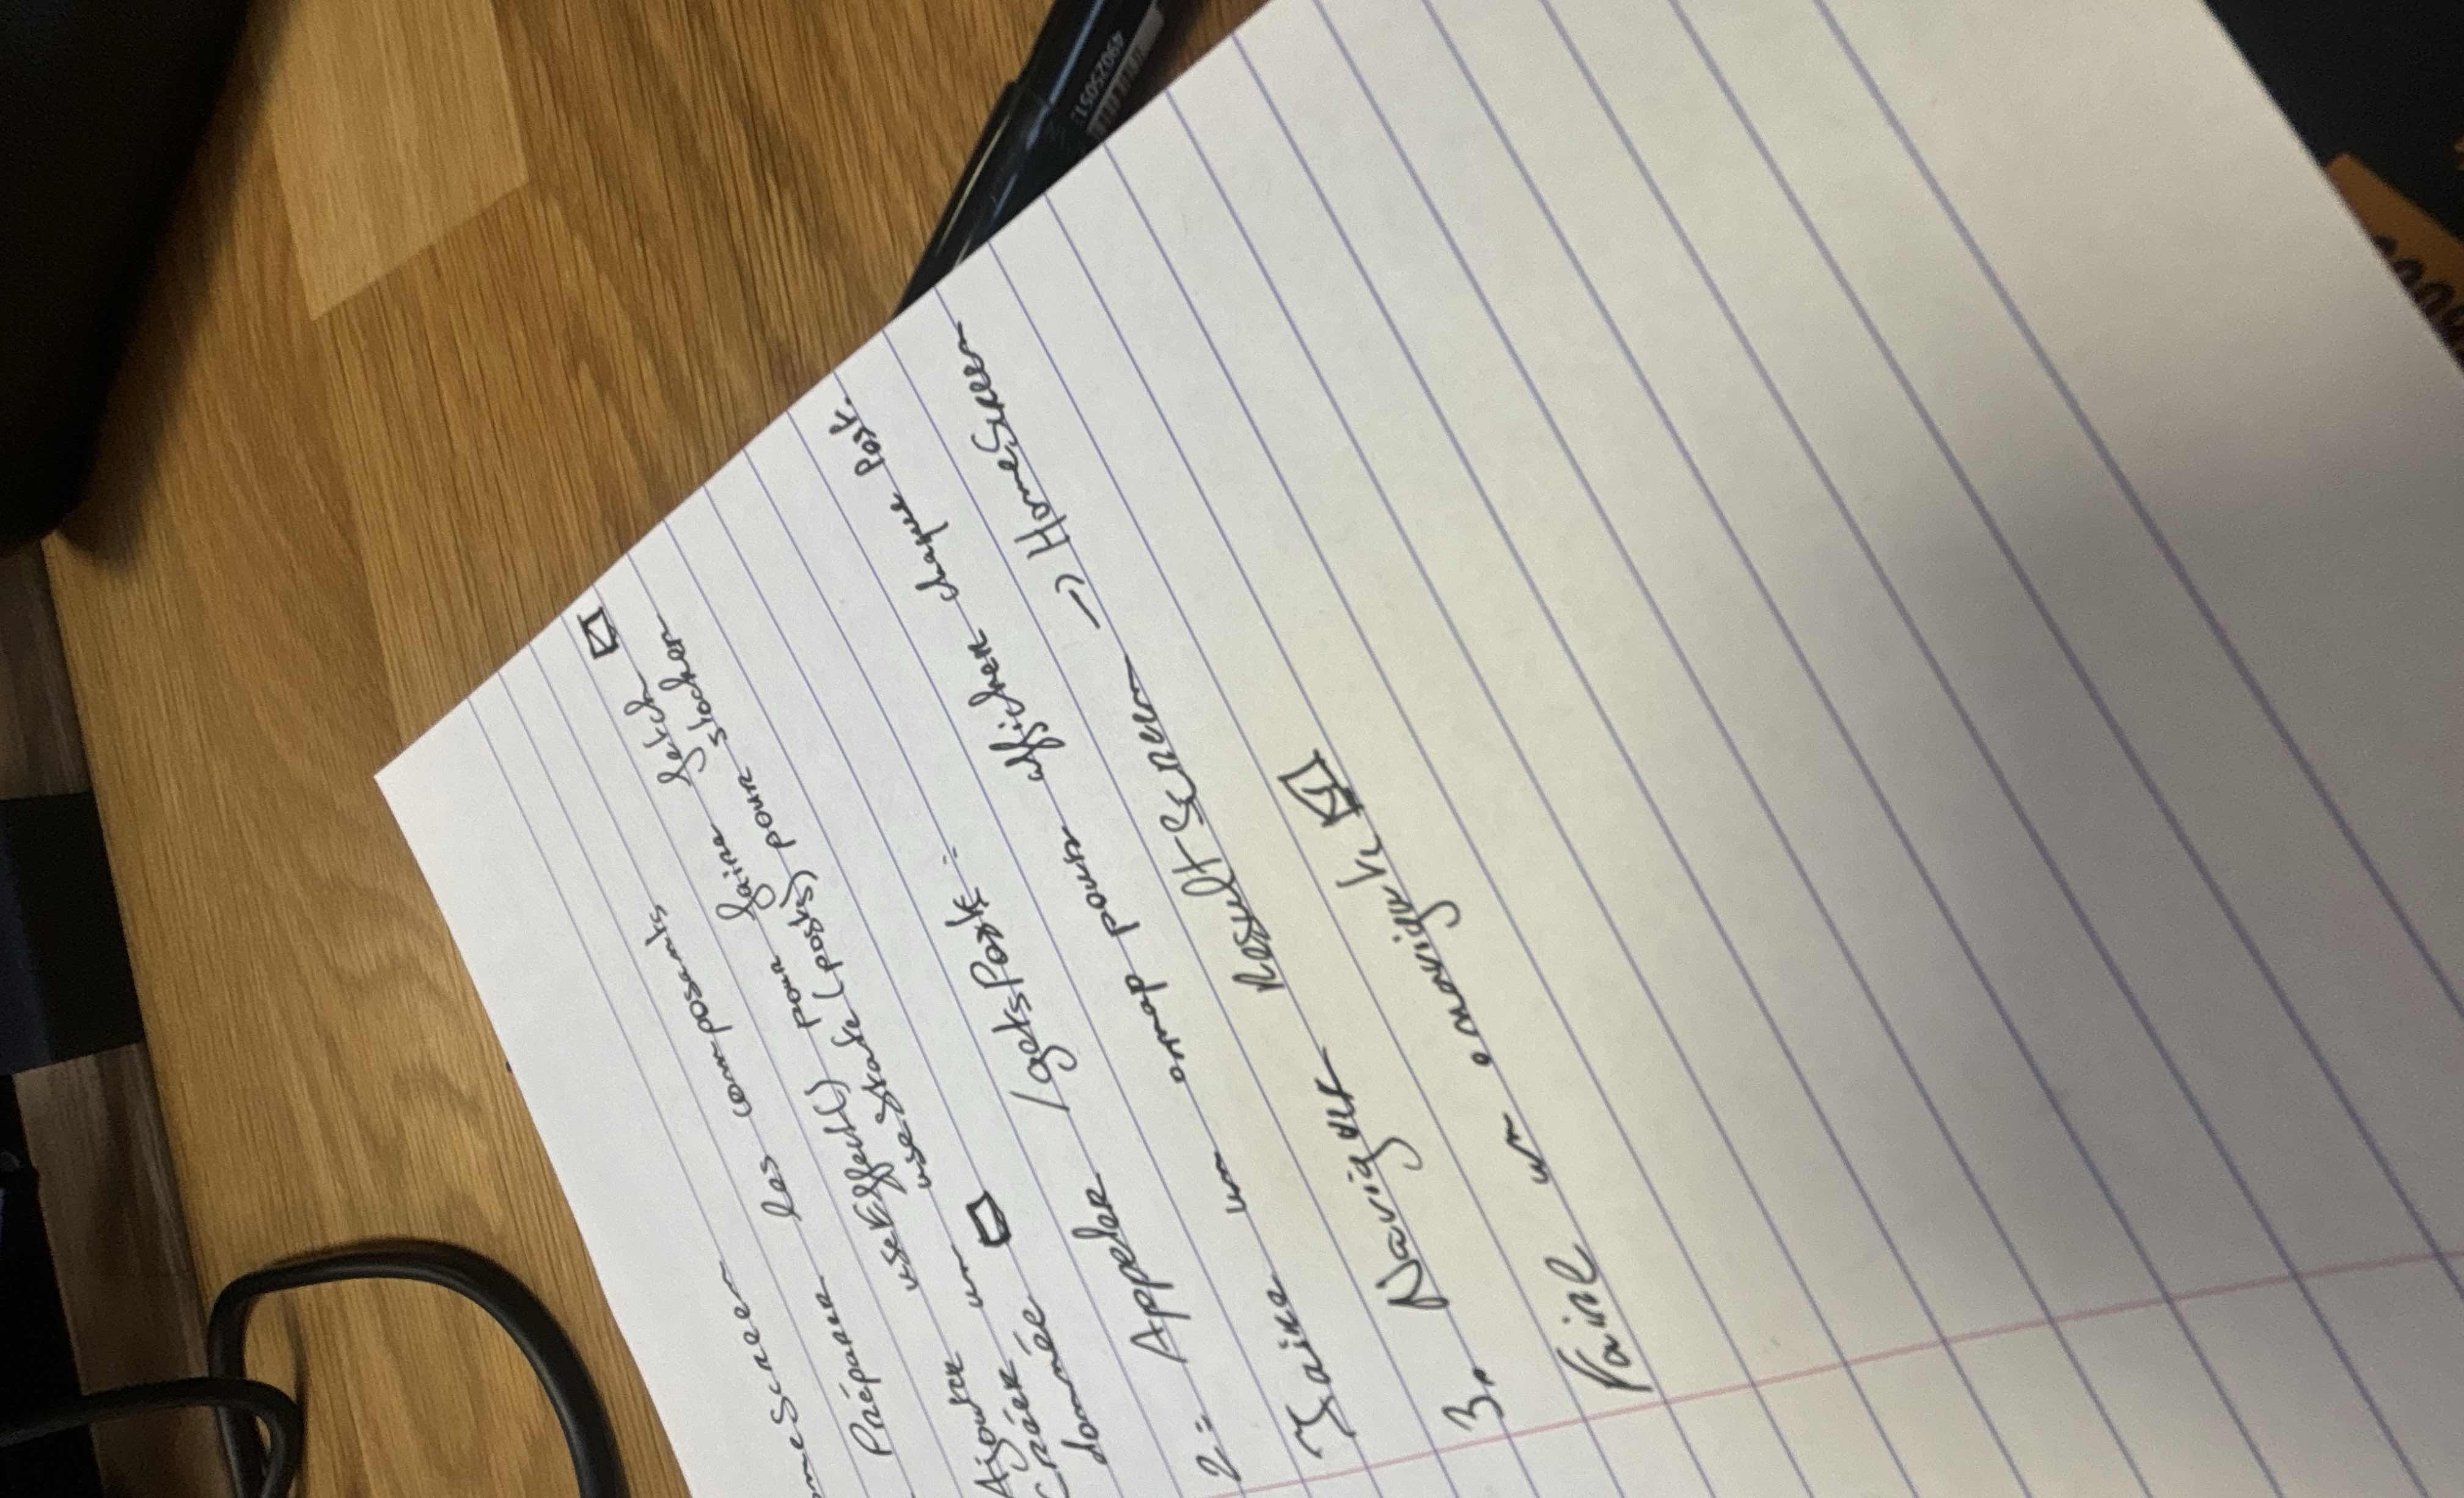 omeScreen
Préparer les composants
Ajouter useEffect() pour faire fetch ☑
Créer un useState(posts) pour stocker
donnée ☐
2. Appeler /getsPosts:
Faire un .map pour afficher chaque Post.
3. Naviguer ResultScreen -> HomeScreen
Faire un .navigate ☑
49025051